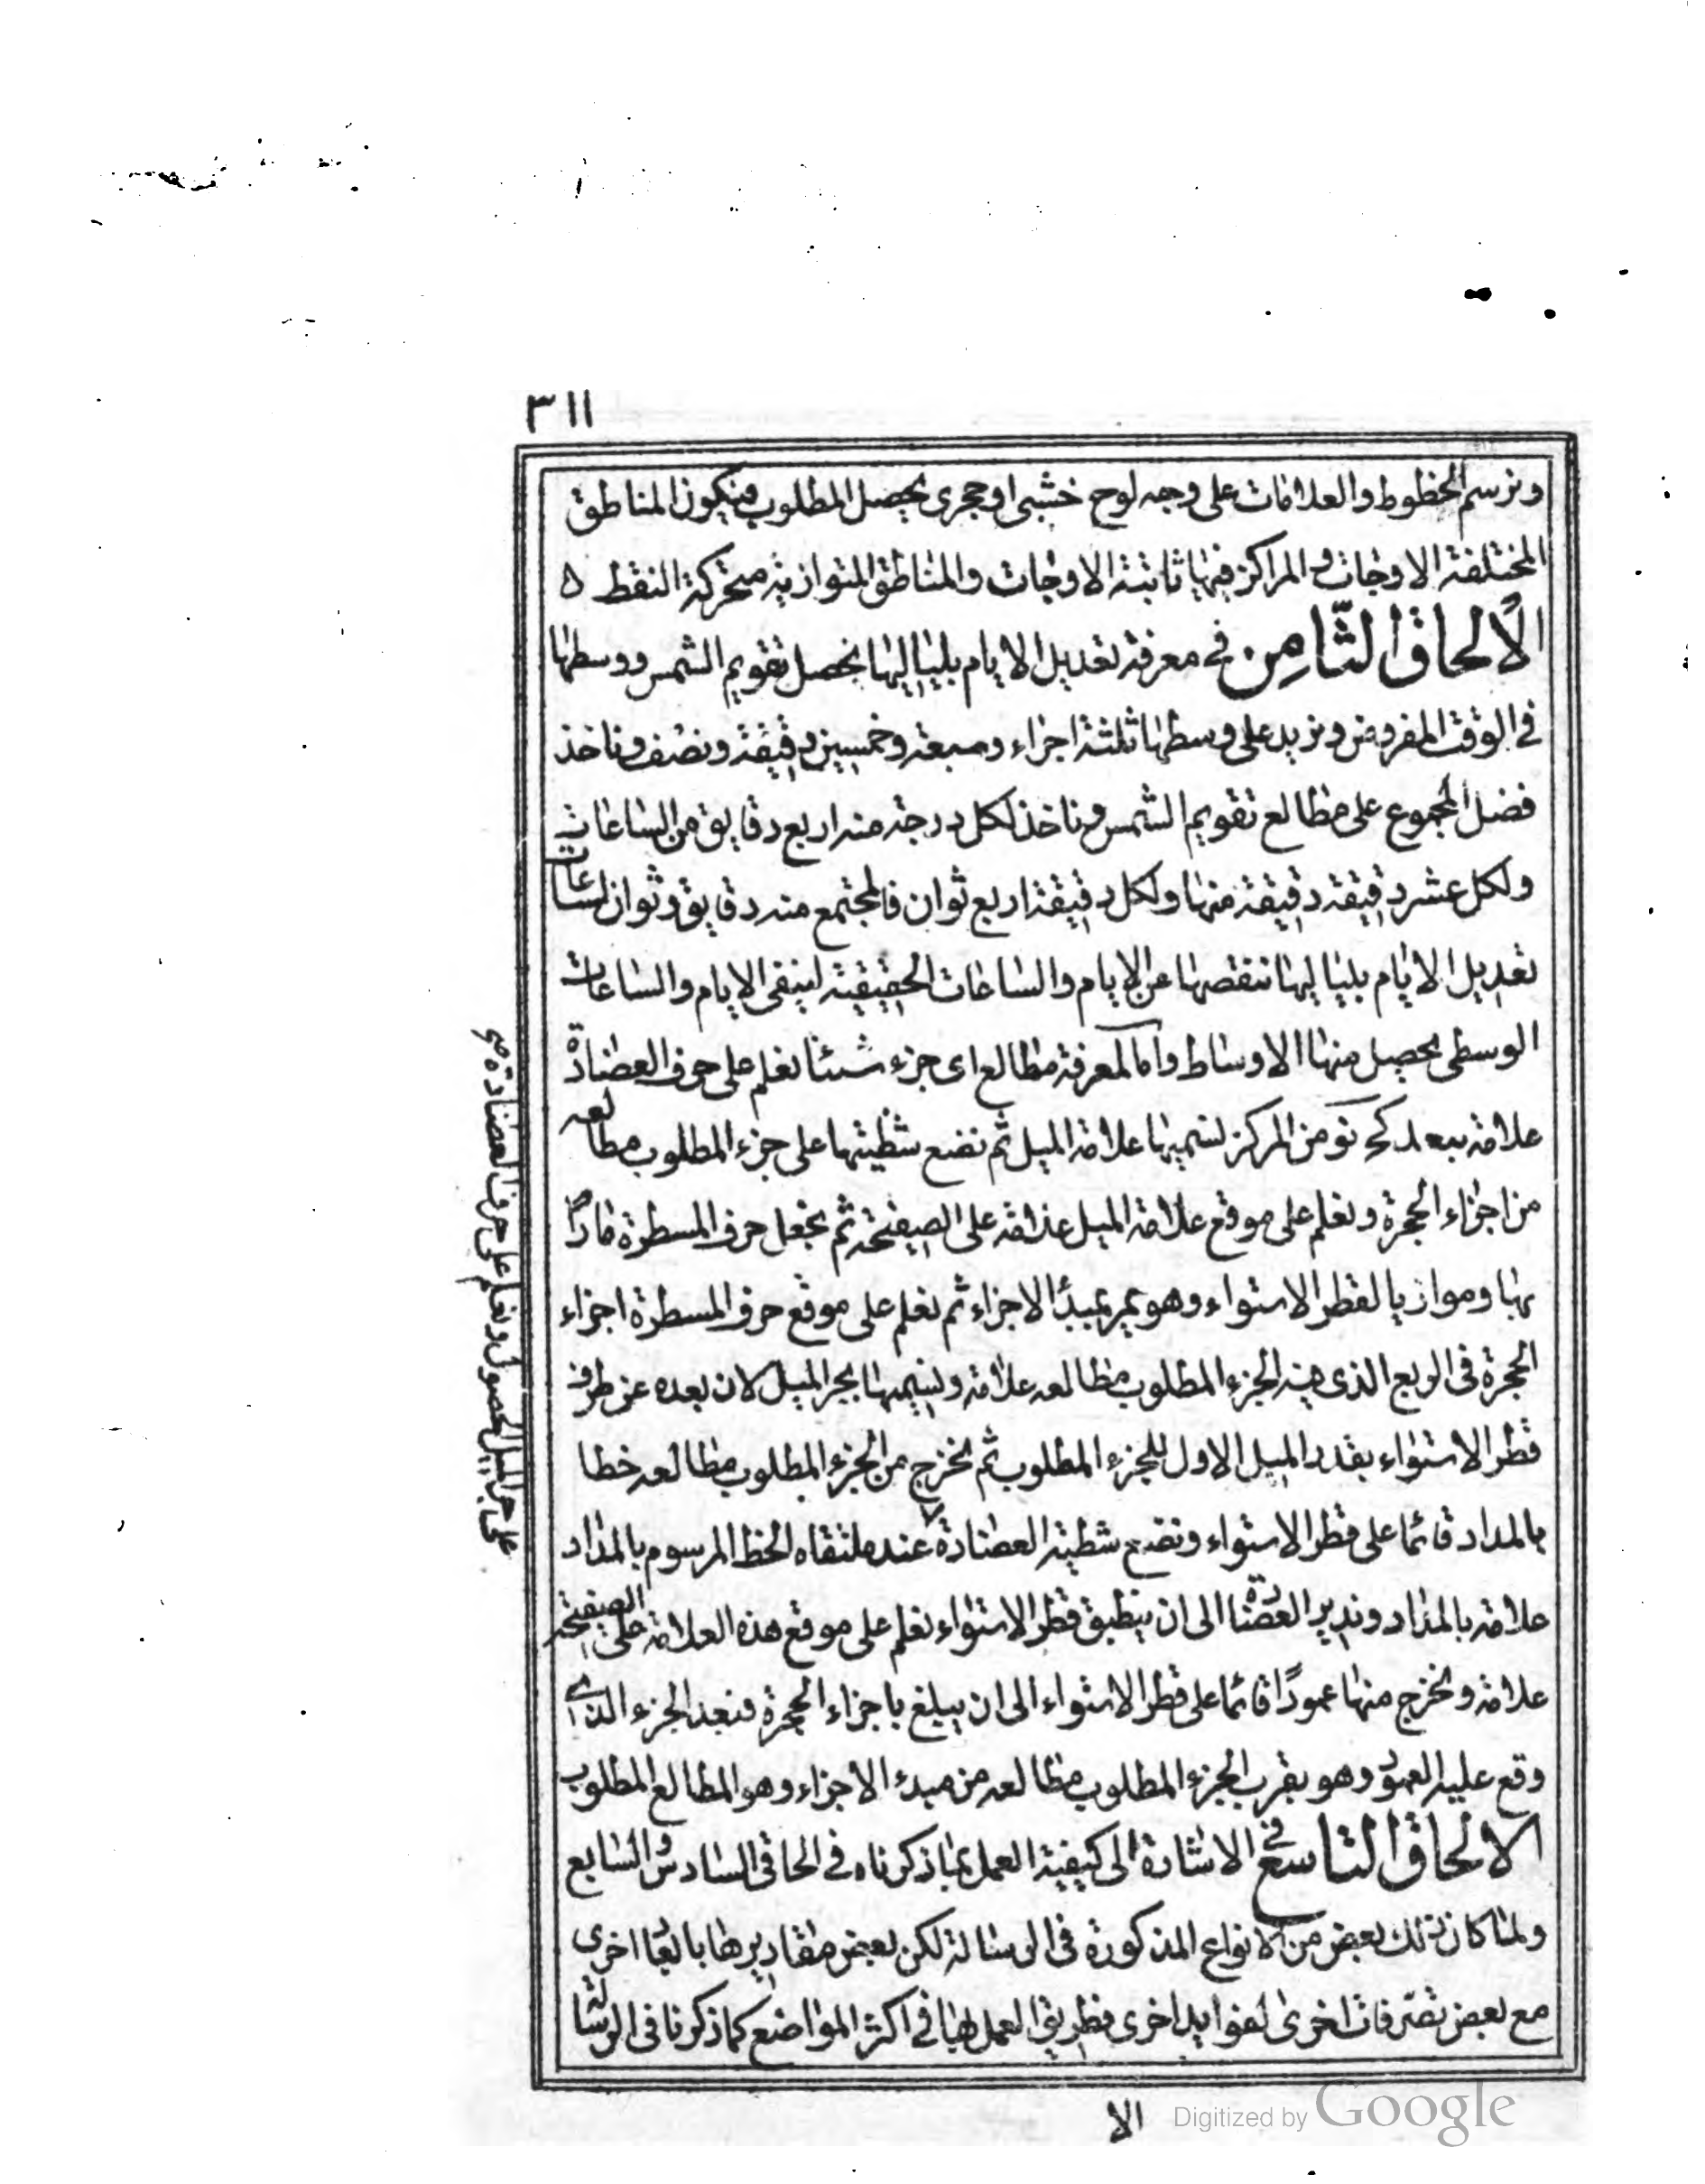 ٣١١
ونرسم الخطوط والعلامات على وجه لوح خشبى او حجرى يحصل المطلوب فيكون المناطق
المختلفة الاوجات والمراكز فيها ثابتة الاوجات والمناطق المتوازية متحركة النقط ٥
الالحاق الثامن في معرفة تعديل الايام بلياليها نحصل تقويم الشمس ووسطها
في الوقت المفروض ونزيد على وسطها ثلثة اجزاء وسبعة وخمسين دقيقة ونصف وناخذ
فضل المجموع على مطالع تقويم الشمس وناخذ لكل درجة منه اربع دقايق من الساعات
ولكل عشر دقيقة دقيقة منها ولكل دقيقة اربع ثوان فالمجتمع منه دقايق وثوان لساعات
تعديل الايام بلياليها ننقصها عن الايام والساعات الحقيقية ليبقى الايام والساعات
الوسطى يحصل منها الاوساط واما لمعرفة مطالع اى جزء شئنا نعلم على حرف العضادة
علامة ببعد كح نو من المركز نسميها علامة الميل ثم نضع شظيتها على جزء المطلوب مطالعه
من اجزاء الحجرة ونعلم على موقع علامة الميل علامة على الصفيحة ثم نجعل حرف المسطرة مارا
بها وموازيا لقطر الاستواء وهو يمر بمبدأ الاجزاء ثم نعلم على موقع حرف المسطرة اجزاء
الحجرة فى الربع الذى فيه الجزء المطلوب مطالعه علامة ونسميها بجر الميل لان بعده عن طرف
قطر الاستواء بقدر الميل الاول للجزء المطلوب ثم نخرج من الجزء المطلوب مطالعه خطا
بالمداد قائما على قطر الاستواء ونضع شظية العضادة عند ملتقاه الخط المرسوم بالمداد
علامة بالمداد وندير العضادة الى ان ينطبق قطر الاستواء نعلم على موقع هذه العلامة على الصفيحة
علامة ونخرج منها عمودًا قائما على قطر الاستواء الى ان يبلغ باجزاء الحجرة فبعد الجزء الذى
وقع عليه العمود وهو بقرب الجزء المطلوب مطالعه من مبدء الاجزاء وهو المطالع المطلوب
الالحاق التاسع في الاشارة الى كيفية العمل بما ذكرناه في الحاقى السادس والسابع
ولما كان تلك بعض من الانواع المذكورة فى الرسالة لكن بعض مقاديرها اخرى
مع بعض تصرفات اخرى لفوايد اخرى فطريق العمل بها في اكثر المواضع كما ذكرنا فى الرسالة
الا
على جر الميل الحصول ونعلم على حرف العضادة
Digitized by Google